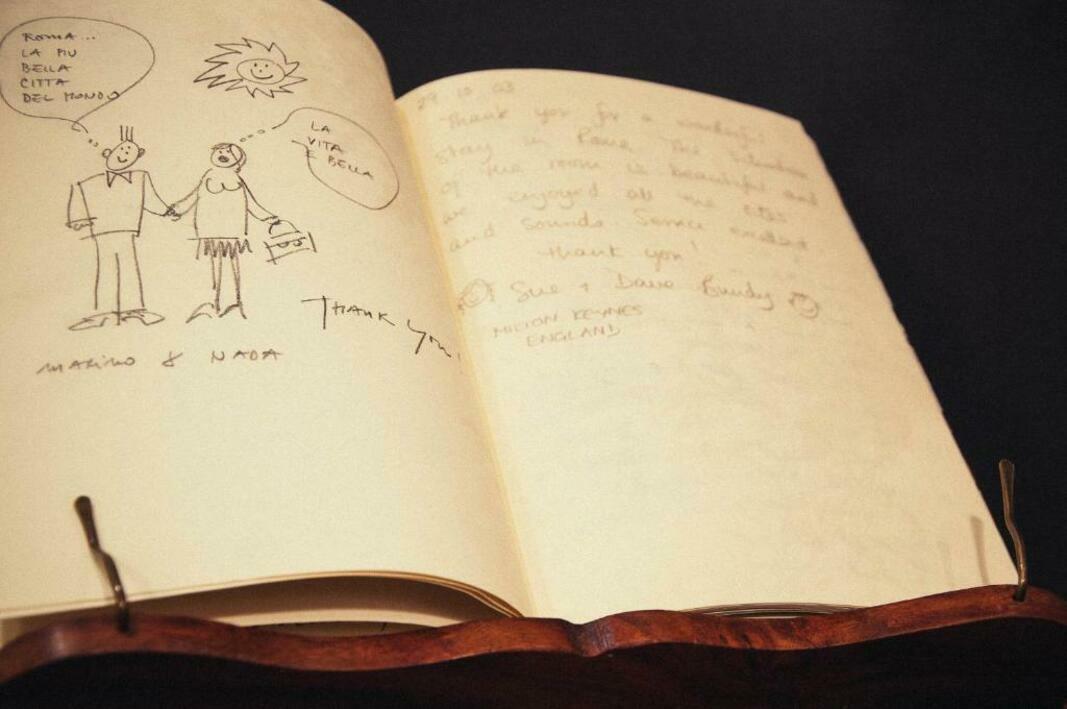 ROMA...
LA PIU
BELLA
CITTA
DEL MONDO
LA
VITA
È BELLA
THANK YOU!
MARINO & NADA
29 10 03
Thank you for a wonderful
stay in Rome. The
of the room is beautiful and
we enjoyed all the sites
and sounds. Service excellent
thank you!
Sue + Dave Bundy
MILTON KEYNES
ENGLAND